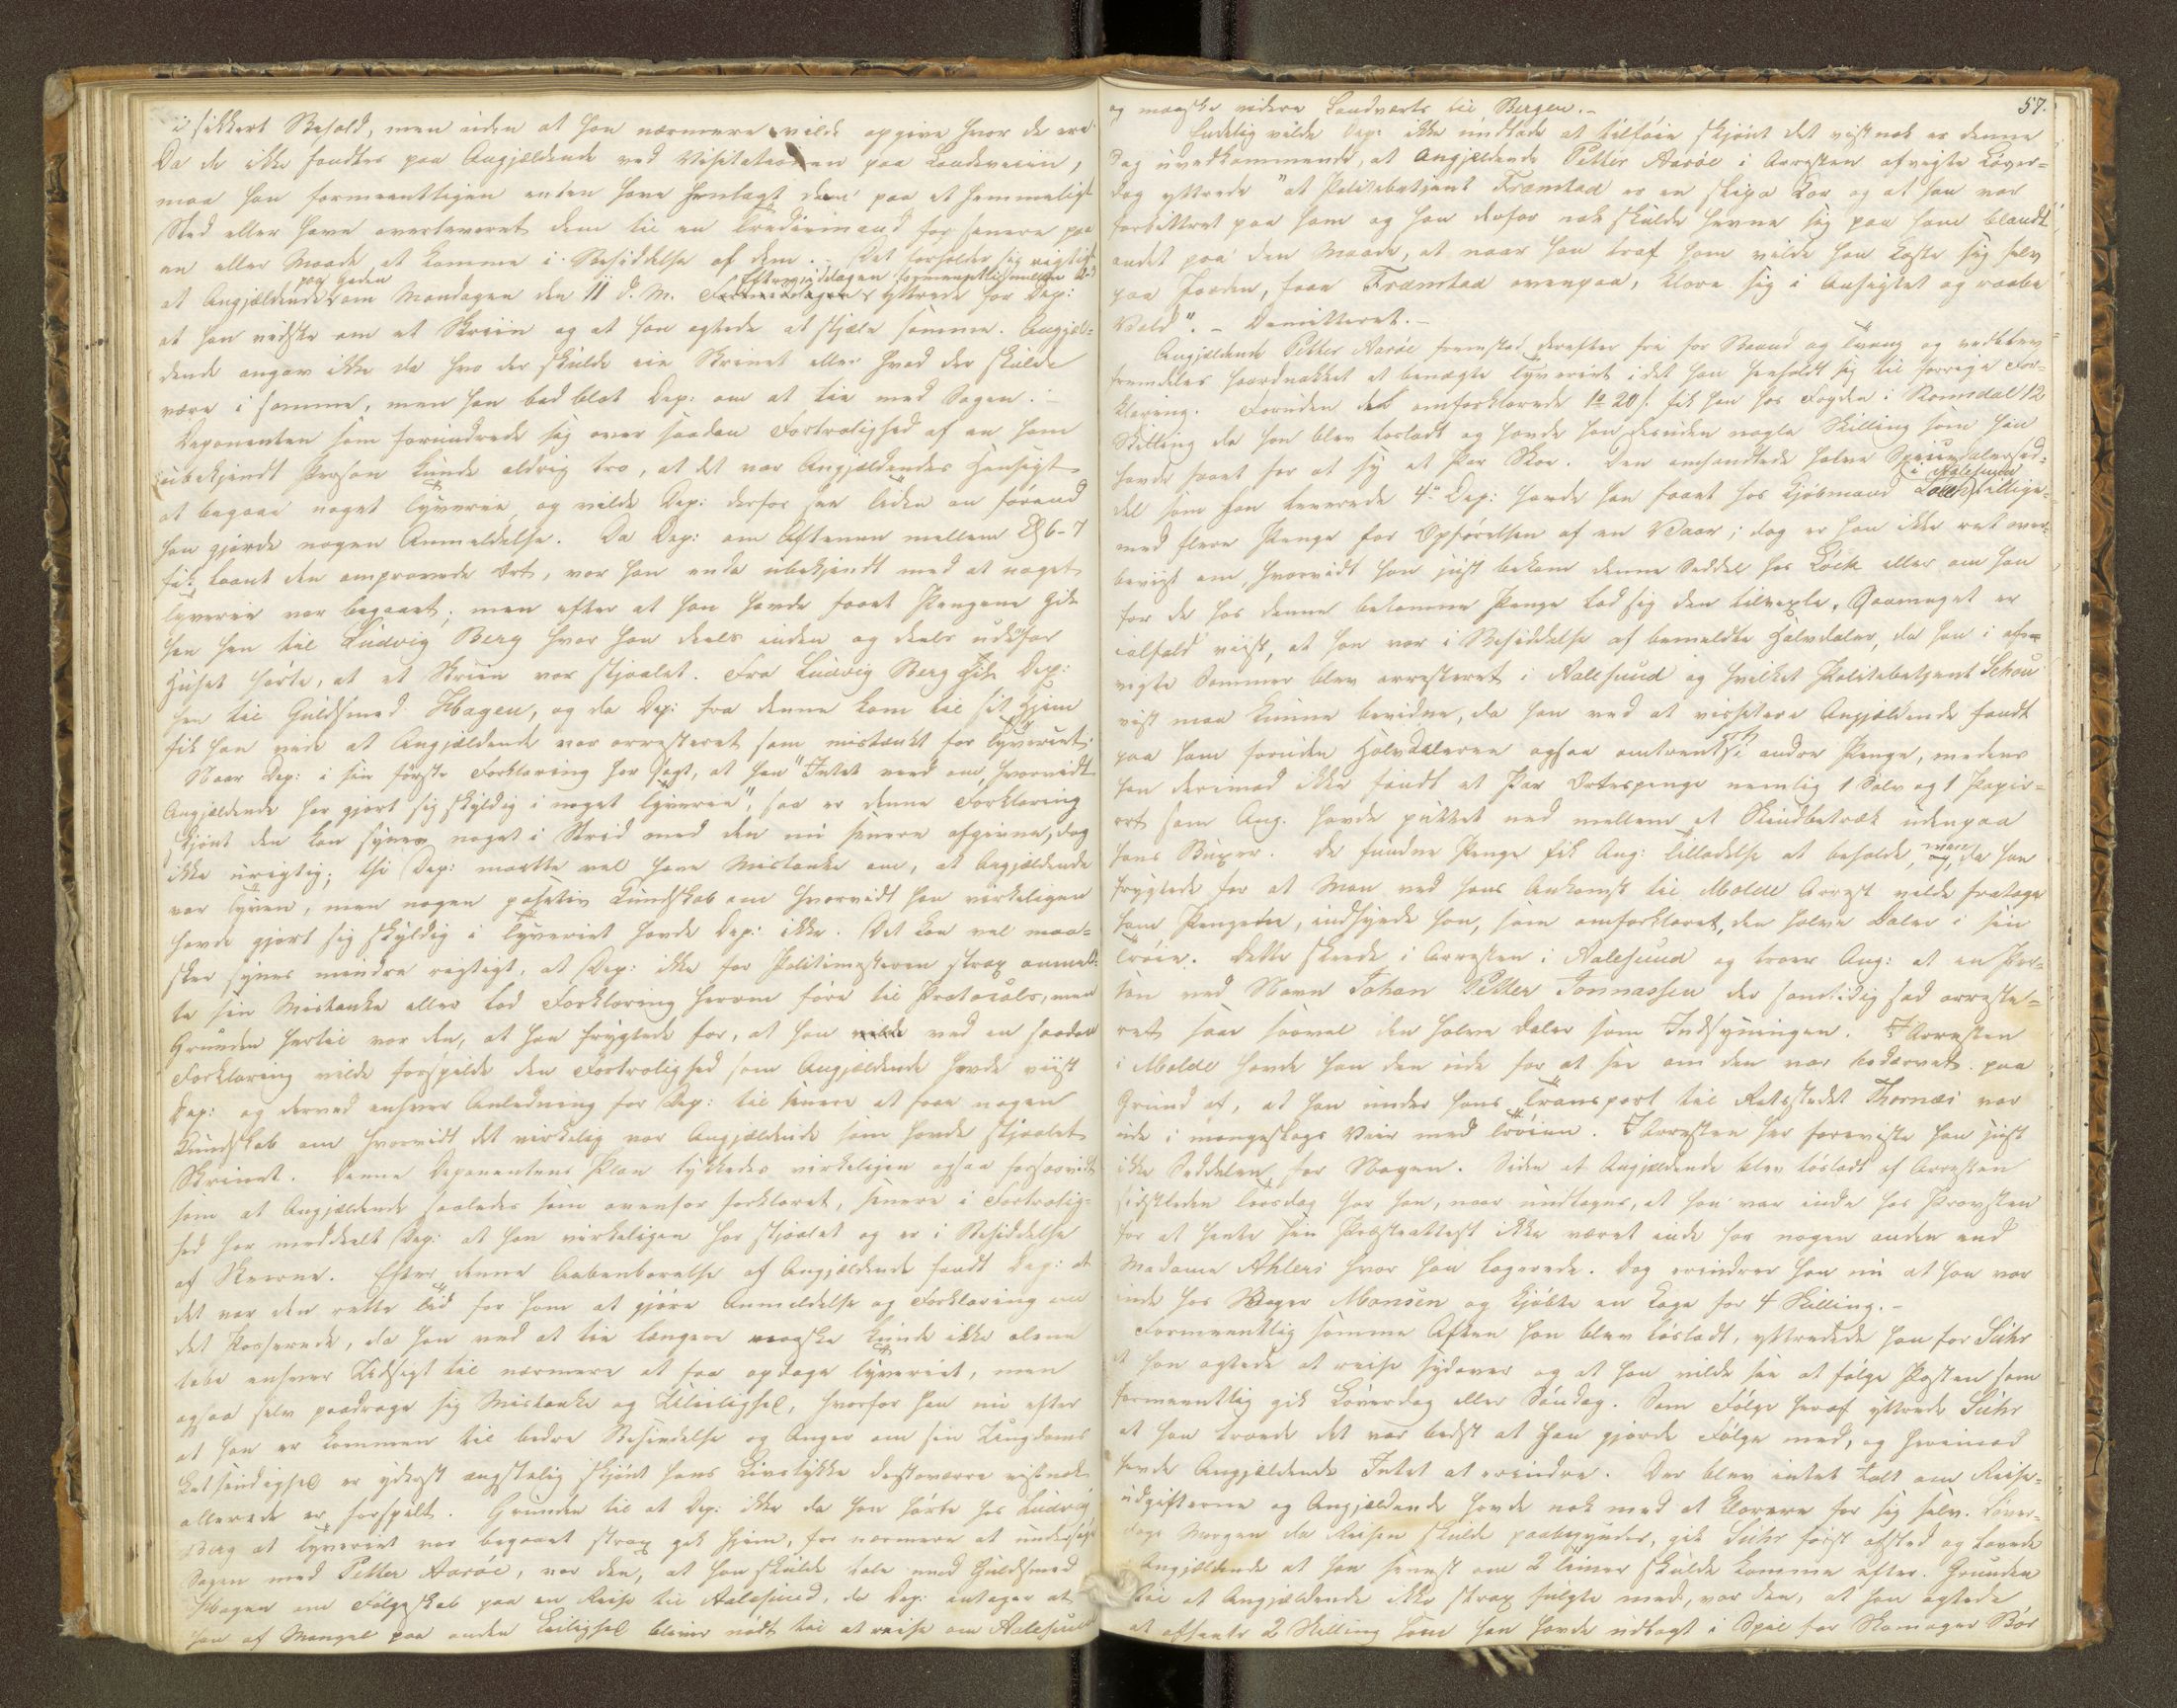 i sikkert Behold, men uden at han nærmere vilde opgive hvor de ere.
Da de ikke fandtes paa Angjældende ved Visitationen paa Landeveien,
maa han formeentligen enten have henlagt dem paa et hemmeligt
Sted eller have overleveret dem til en Trediemand for senere paa
en eller Maade at komme i Besiddelse af dem. - Det forholder sig rigtigt
paa Gaden Eftermiddagen formeentlig mellem
at Angjældende om Mandagen den 11 d. M. Formiddagen yttrede for Dep:
at han vidste om et Skriin og at han agtede at stjæle samme. Angjæl-
dende angav ikke da hvo der skulde eie Skrinet eller hvad der skulde
være i samme, men han bad blot Dep: om at tie med Sagen. -
Deponenten som forundrede sig over saadan Fortrolighed af en ham
ubekjendt Person kunde aldrig tro, at det var Angjældendes Hensigt
at begaae noget Tyverie og vilde Dep: derfor see Tiden an førend
han gjorde nogen Anmeldelse. Da Dep: om Aftenen mellem Kl 6-7
fik laant den omprovede Ort, var han endu ubekjendt med at noget
Tyverie var begaaet; men efter at han havde faaet Pengene gik
han hen til Ludvig Berg hvor han deels inden og deels udenfor
Huset hørte, at et Skriin var stjaalet. Fra Ludvig Berg gik Dep:
hen til Guldsmed Hagen, og da Dep: fra denne kom til sit Hjem
fik han vide at Angjældende var arresteret som mistænkt for Tyveriet.
Naar Dep: i sin første Forklaring har sagt, at han "Intet veed om, hvorvidt
Angjældende har gjort sig skyldig i noget Tyverie", saa er denne Forklaring
skjønt den kan synes noget i Strid med den nu senere afgivne, dog
ikke urigtig; thi Dep: maatte vel have Mistanke om, at Angjældende
var Tyven, men nogen positiv Kundskab om hvorvidt han virkeligen
havde gjort sig skyldig i Tyveriet havde Dep: ikke. Det kan vel maa-
skee synes mindre rigtigt, at Dep: ikke for Politimesteren strax anmeld-
te sin Mistanke eller lod Forklaring herom føre til Protocols, men
Grunden hertil var den, at han frygtede for, at han vilde ved en saadan
Forklaring vilde forspilde den Fortrolighed som Angjældende havde viist
Dep: og derved enhver Anledning for Dep: til senere at faae nogen
Kundskab om hvorvidt det virkelig var Angjældende som havde stjaalet
Skrinet. Denne Deponentens Plan lykkedes virkeligen ogsaa forsaavidt
som at Angjældende saaledes som ovenfor forklaret, senere i Fortrolig-
hed har meddeelt Dep: at han virkeligen har stjaalet og er i Besiddelse
af Skeerne. Efter denne Aabenbarelse af Angjældende fandt Dep: at
det var den rette Tid for ham at gjøre Anmeldelse og Forklaring om
det Passerede, da han ved at tie længere maaskee kunde ikke alene
tabe enhver Udsigt til nærmere at faa opdage Tyveriet, men
ogsaa selv paadrage sig Mistanke og Uleilighed, hvorfor han nu efter
at han er kommen til bedre Besindelse og Anger om sin Ungdoms
Letsindighed er yderst ængstelig skjønt hans Livslykke desværre vistnok
allerede er forspildt. Grunden til at Dep: ikke da han hørte hos Ludvig
Berg at Tyveriet var begaaet strax gik hjem, for nærmere at undersøge
Sagen med Petter Aarøe, var den, at han skulde tale med Guldsmed
Hagen om Følgeskab paa en Reise til Aalesund, da Dep: antager at
han af Mangel paa anden Leilighed bliver nødt til at reise om Aalesund
57.
og maaskee videre Landværts til Bergen. -
Endelig vilde Dep: ikke undlade at tilføie skjønt det vistnok er denne
Sag uvedkommende, at Angjældende Petter Aarøe i Arresten afvigte Løver-
dag yttrede "at Politibetjent Framstad er en Kar og at han var
forbittret paa ham og han derfor nok skulde hevne sig paa ham blandt
andet paa den Maade, at naar han traf ham vilde han kaste sig selv
paa Jorden, faae Framstad ovenpaa, klore sig i Ansigtet og raabe
Vold". - Demitteret. -
Angjældende Petter Aarøe fremstod derefter fri for Baand og Tvang og vedblev
fremdeles haardnakket at benægte Tyveriet idet han henholdt sig til forrige For-
klaring. Foruden de omforklarede 1 20 s. fik han hos Fogden i Romsdal 12
Skilling da han blev løsladt og havde han desuden nogle Skilling som han
havde faaet for at sy et Par Skoe. Den omhandlede halve Speciedalersed-
i Aalesund
del som han leverede 4de Dep: havde han faaet hos Kjøbmand Løck tillige-
med flere Penge for Opførelsen af en Vaar; dog er han ikke ret over-
bevist om, hvorvidt han just bekom denne Seddel hos Løck eller om han
for de hos denne bekomne Penge lod sig den tilvexle. Saameget er
ialfald vist, at han var i Besiddelse af bemeldte Halvdaler, da han i afvi-
vigte Sommer blev arresteret i Aalesund og hvilket Politibetjent Schou
vist maa kunne bevidne, da han ved at visitere Angjældende fandt
paa ham foruden Halvdaleren ogsaa omtrent andre Penge, medens
han derimod ikke fandt et Par Ortespenge nemlig 1 Sølv og 1 Papir-
ort som Ang. havde puttet ned mellem et Skindbetræk udenpaa
hans Buxer. De fundne Penge fik Ang: Tilladelse at beholde, men da han
frygtede for at Man ved hans Ankomst til Molde Arrest vilde fratage
ham Pengene, indsyede han, som omforklaret, den halve Daler i sin
Trøie. Dette skede i Arresten i Aalesund og troer Ang: at en Per-
son ved Navn Johan Petter Jonnassen der samtidig sad arreste-
ret saae saavel den halve Daler som Indsyningen. I Arresten
i Molde havde han den ude for at see om den var bedærvet paa
Grund af, at han under hans Transport til Retsstedet Thornæs var
ude i mangeslags Veir med Trøien. I Arresten her foreviste han just
ikke Seddelen for Nogen. Siden at Angjældende blev løsladt af Arresten
sidstleden Torsdag har han, naar undtages, at han var inde hos Provsten
for at hente sin Præsteattest ikke været inde hos nogen anden end
Madame Ahlers hvor han logerede. Dog erindrer han nu at han var
inde hos Bager Monsen og kjøbte en Kage for 4 Skilling. -
Formeentlig samme Aften han blev løsladt, yttrede han for Suhr
at han agtede at reise sydover og at han vilde see at følge Posten som
formeentlig gik Løverdag eller Søndag. Som Følge heraf yttrede Suhr
at han troede det var bedst at han gjorde Følge med, og herimod
havde Angjældende Intet at erindre. Der blev intet talt om Reise-
udgifterne og Angjældende havde nok med at klarere for sig selv. Løver-
dags Morgen da Reisen skulde paabegyndes, gik Suhr først afsted og lovede
Angjældende at han senest om 2 Timer skulde komme efter. Grunden
til at Angjældende ikke strax fulgte med, var den, at han agtede
at afhente 2 Skilling som han havde udlagt i Spil for Skomager Bør